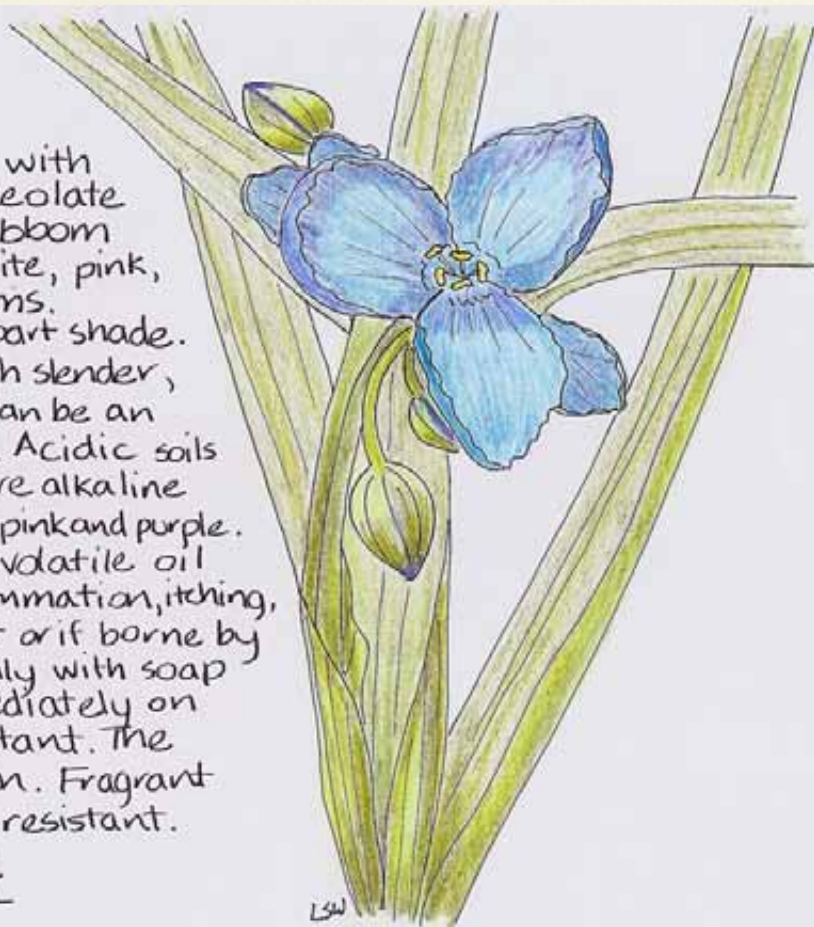 with
eolate
bloom
ite, pink,
ms.
part shade.
h slender,
an be an
Acidic soils
re alkaline
pink and purple.
volatile oil
mmation, itching,
or if borne by
lly with soap
ediately on
tant. The
n. Fragrant
resistant.
LSW